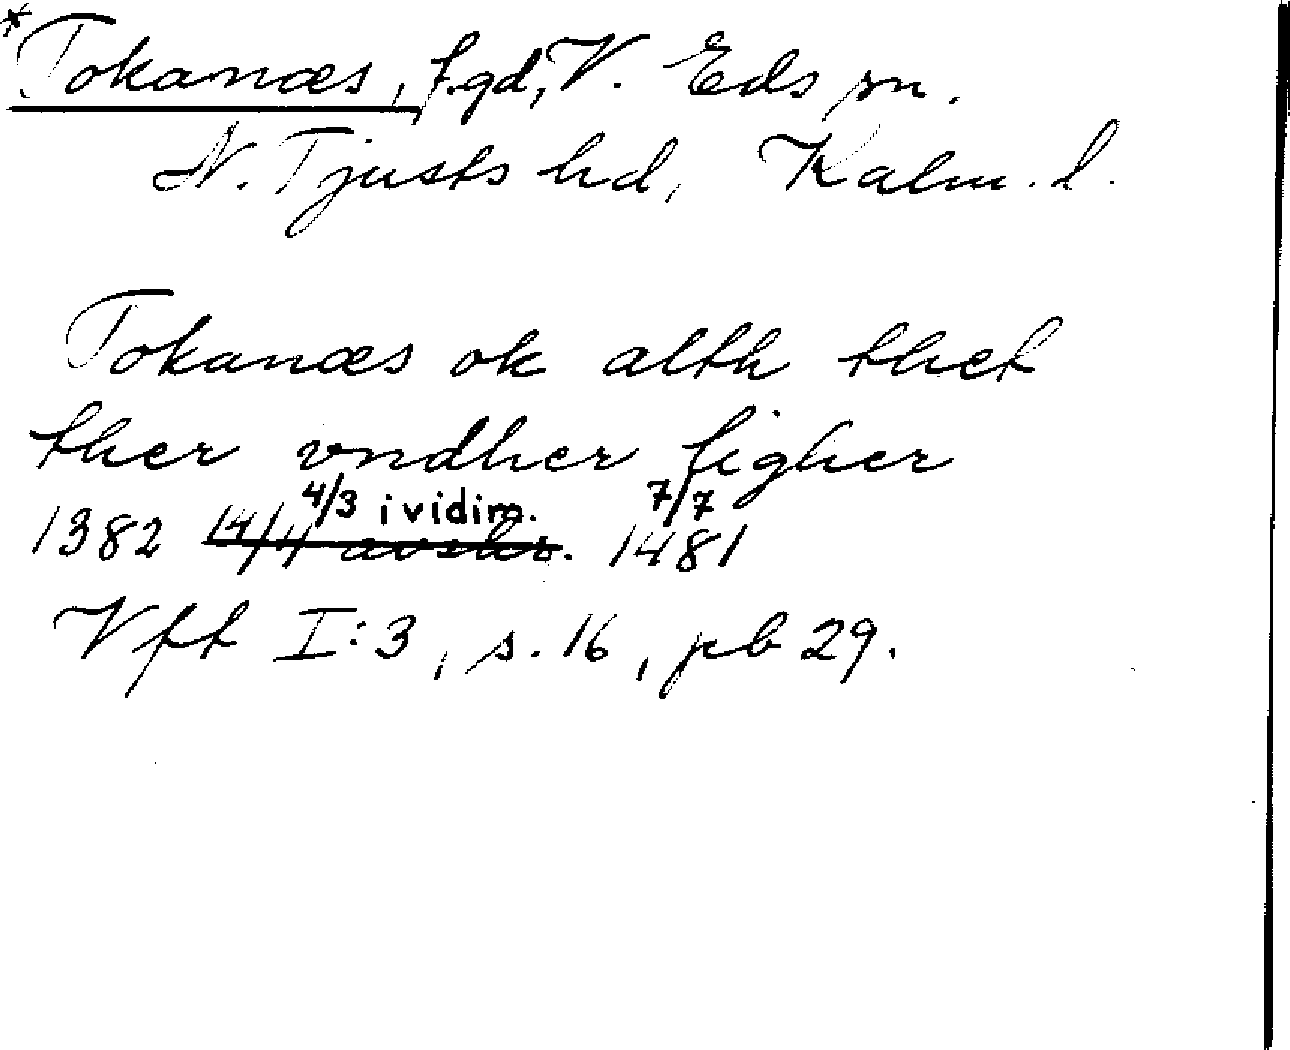 *Tokanæs, f.gd, V. Eds sn.
N. Tjusts hd, Kalm. l.
Tokanæs ok alth thet
ther vndher ligher
4/3 i vidim. 7/7
1382 14/4 avskr. 1481
Vff I:3, s. 16, pb 29.